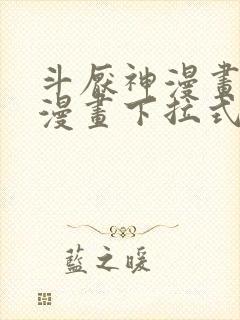 斗厥神漫畫
漫畫下拉式
藍之暖